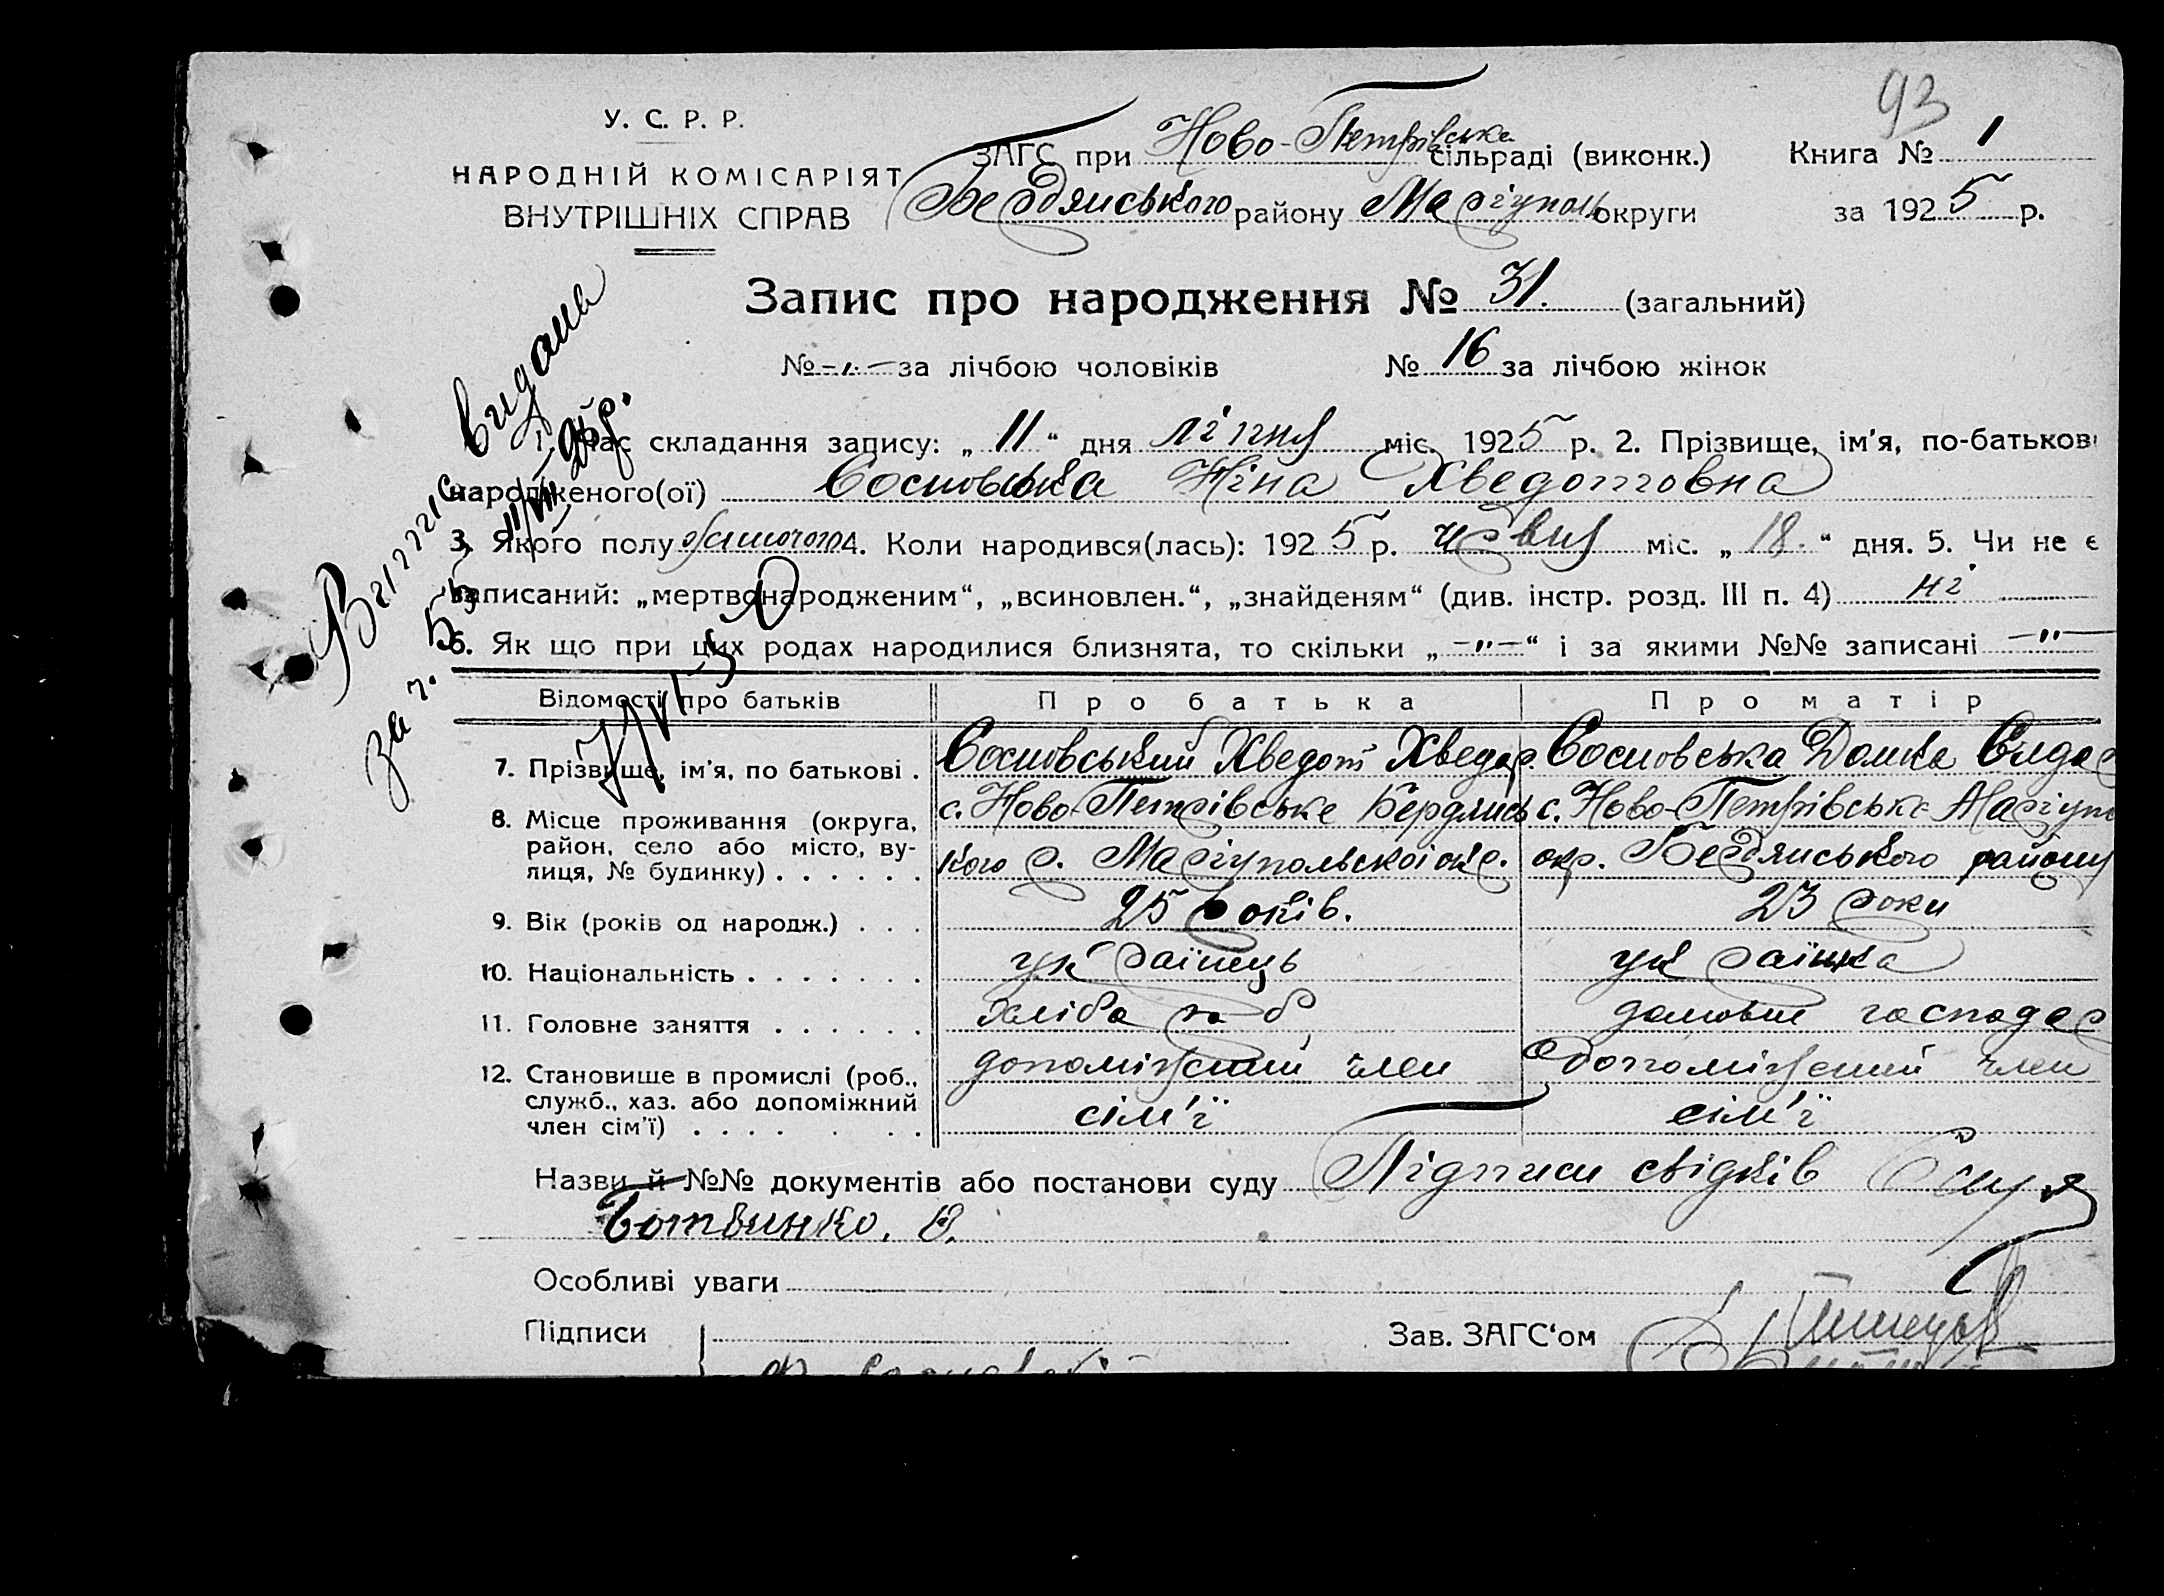 93
У. С. Р. Р.
НАРОДНІЙ КОМІСАРІЯТ
ВНУТРІШНІХ СПРАВ
ЗАГС при Ново-Петрівське сільраді (виконк.) Книга № 1
Бердянського району Маріуполь округи за 1925 р.
Запис про народження № 31. (загальний)
№ -"- за лічбою чоловіків № 16 за лічбою жінок
1. Час складання запису: „11“ дня ліпня міс. 1925 р. 2. Прізвище, ім'я, по-батькові
народженого(ої) Сосновська Ніна Хведотовна
3. Якого полу жіночого 4. Коли народився(лась): 1925 р. червня міс. „18.“ дня. 5. Чи не є
записаний: „мертвонародженим“, „всиновлен.“, „знайденям“ (див. інстр. розд. III п. 4) ні
6. Як що при цих родах народилися близнята, то скільки „-"-“ і за якими №№ записані -"-
Виппис видана
за ч.
Відомості про батьків Про батька Про матір
7. Прізвище, ім'я, по батькові . Сосновський Хведот Хведор. Сосновська Домка
8. Місце проживання (округа, с. Ново-Петрівське Бердянсь с. Ново-Петрівське Маріупо
район, село або місто, ву-
лиця, № будинку) . . . . . . кого р. Маріупольскої окр. окр. Бердянського району
9. Вік (років од народж.) . . . 25 років. 23 роки
10. Національність . . . . . . . українець українка
11. Головне заняття . . . . . . хлібороб домовне господар
12. Становище в промислі (роб., допоміжний член допоміжний член
служб., хаз. або допоміжний
член сім'ї) . . . . . . . сім'ї сім'ї
Назви й №№ документів або постанови суду Підписи свідків
Ботвинко.
Особливі уваги
Підписи Зав. ЗАГС‘ом